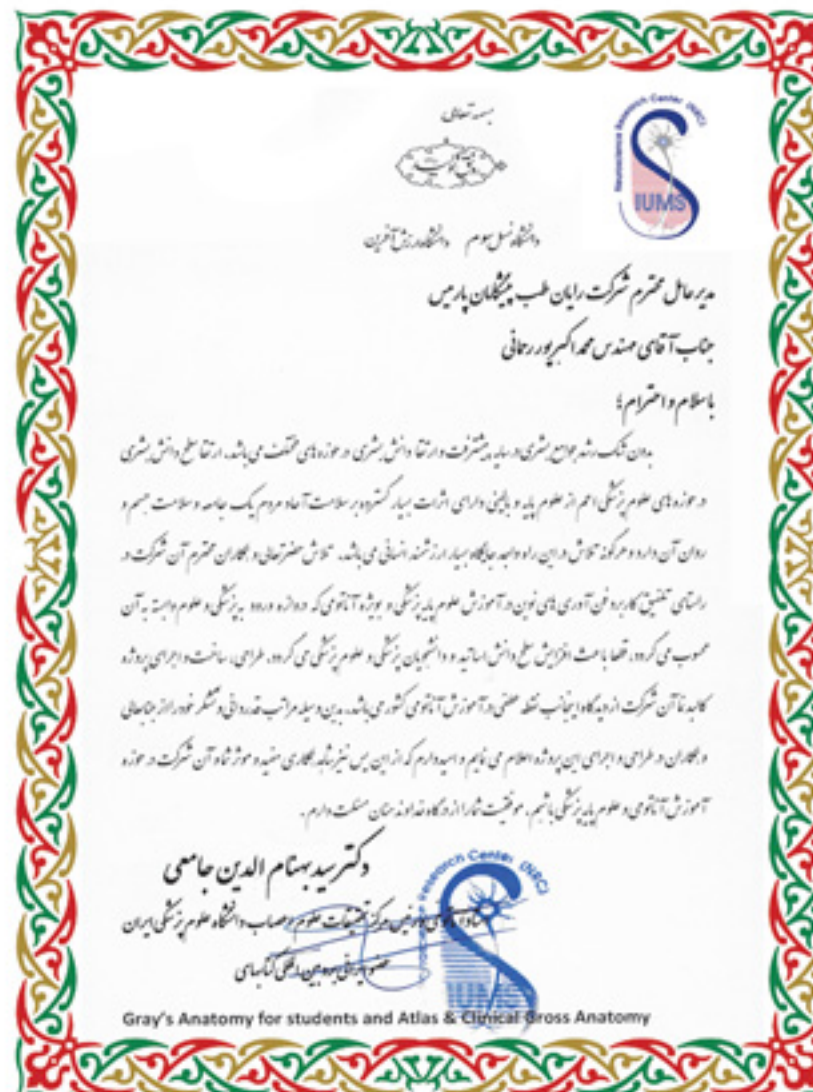 بسمه تعالی
Neuroscience Research Center (NRC)
IUMS
دانشگاه نسل سوم دانشگاه ارزش آفرین
مدیر عامل محترم شرکت رایان طب پیشگامان پارس
جناب آقای مهندس محمد اکبرپور رحمانی
با سلام و احترام؛
بدون شک رشد جوامع بشری در سایه پیشرفت و ارتقا دانش بشری در حوزه های مختلف می باشد. ارتقا سطح دانش بشری
در حوزه های علوم پزشکی اعم از علوم پایه و بالینی دارای اثرات بسیار گسترده بر سلامت آحاد مردم یک جامعه و سلامت جسم و
روان آن دارد و هرگونه تلاش در این راه واجد جایگاه بسیار ارزشمند انسانی می باشد. تلاش حضرتعالی و همکاران محترم آن شرکت در
راستای تلفیق کاربرد فن آوری های نوین در آموزش علوم پایه پزشکی و بویژه آناتومی که دروازه ورود به پزشکی و علوم وابسته به آن
محسوب می گردد، قطعا باعث افزایش سطح دانش اساتید و دانشجویان پزشکی و علوم پزشکی می گردد. طراحی، ساخت و اجرای پروژه
کالبد نما آن شرکت از دیدگاه اینجانب نقطه عطفی در آموزش آناتومی کشور می باشد. بدین وسیله مراتب قدردانی و تشکر خود را از جنابعالی
و همکاران در طراحی و اجرای این پروژه اعلام می نمایم و امیدوارم که از این پس نیز شاهد همکاری مفید و موثر شما و آن شرکت در حوزه
آموزش آناتومی و علوم پایه پزشکی باشیم. موفقیت شما را از درگاه خداوند منان مسئلت دارم.
دکتر سید بهنام الدین جامعی
استاد آناتومی مرکز تحقیقات علوم اعصاب دانشگاه علوم پزشکی ایران
عضو ایرانی بین المللی کتابهای
Research Center (NRC)
IUMS
Gray's Anatomy for students and Atlas & Clinical Gross Anatomy